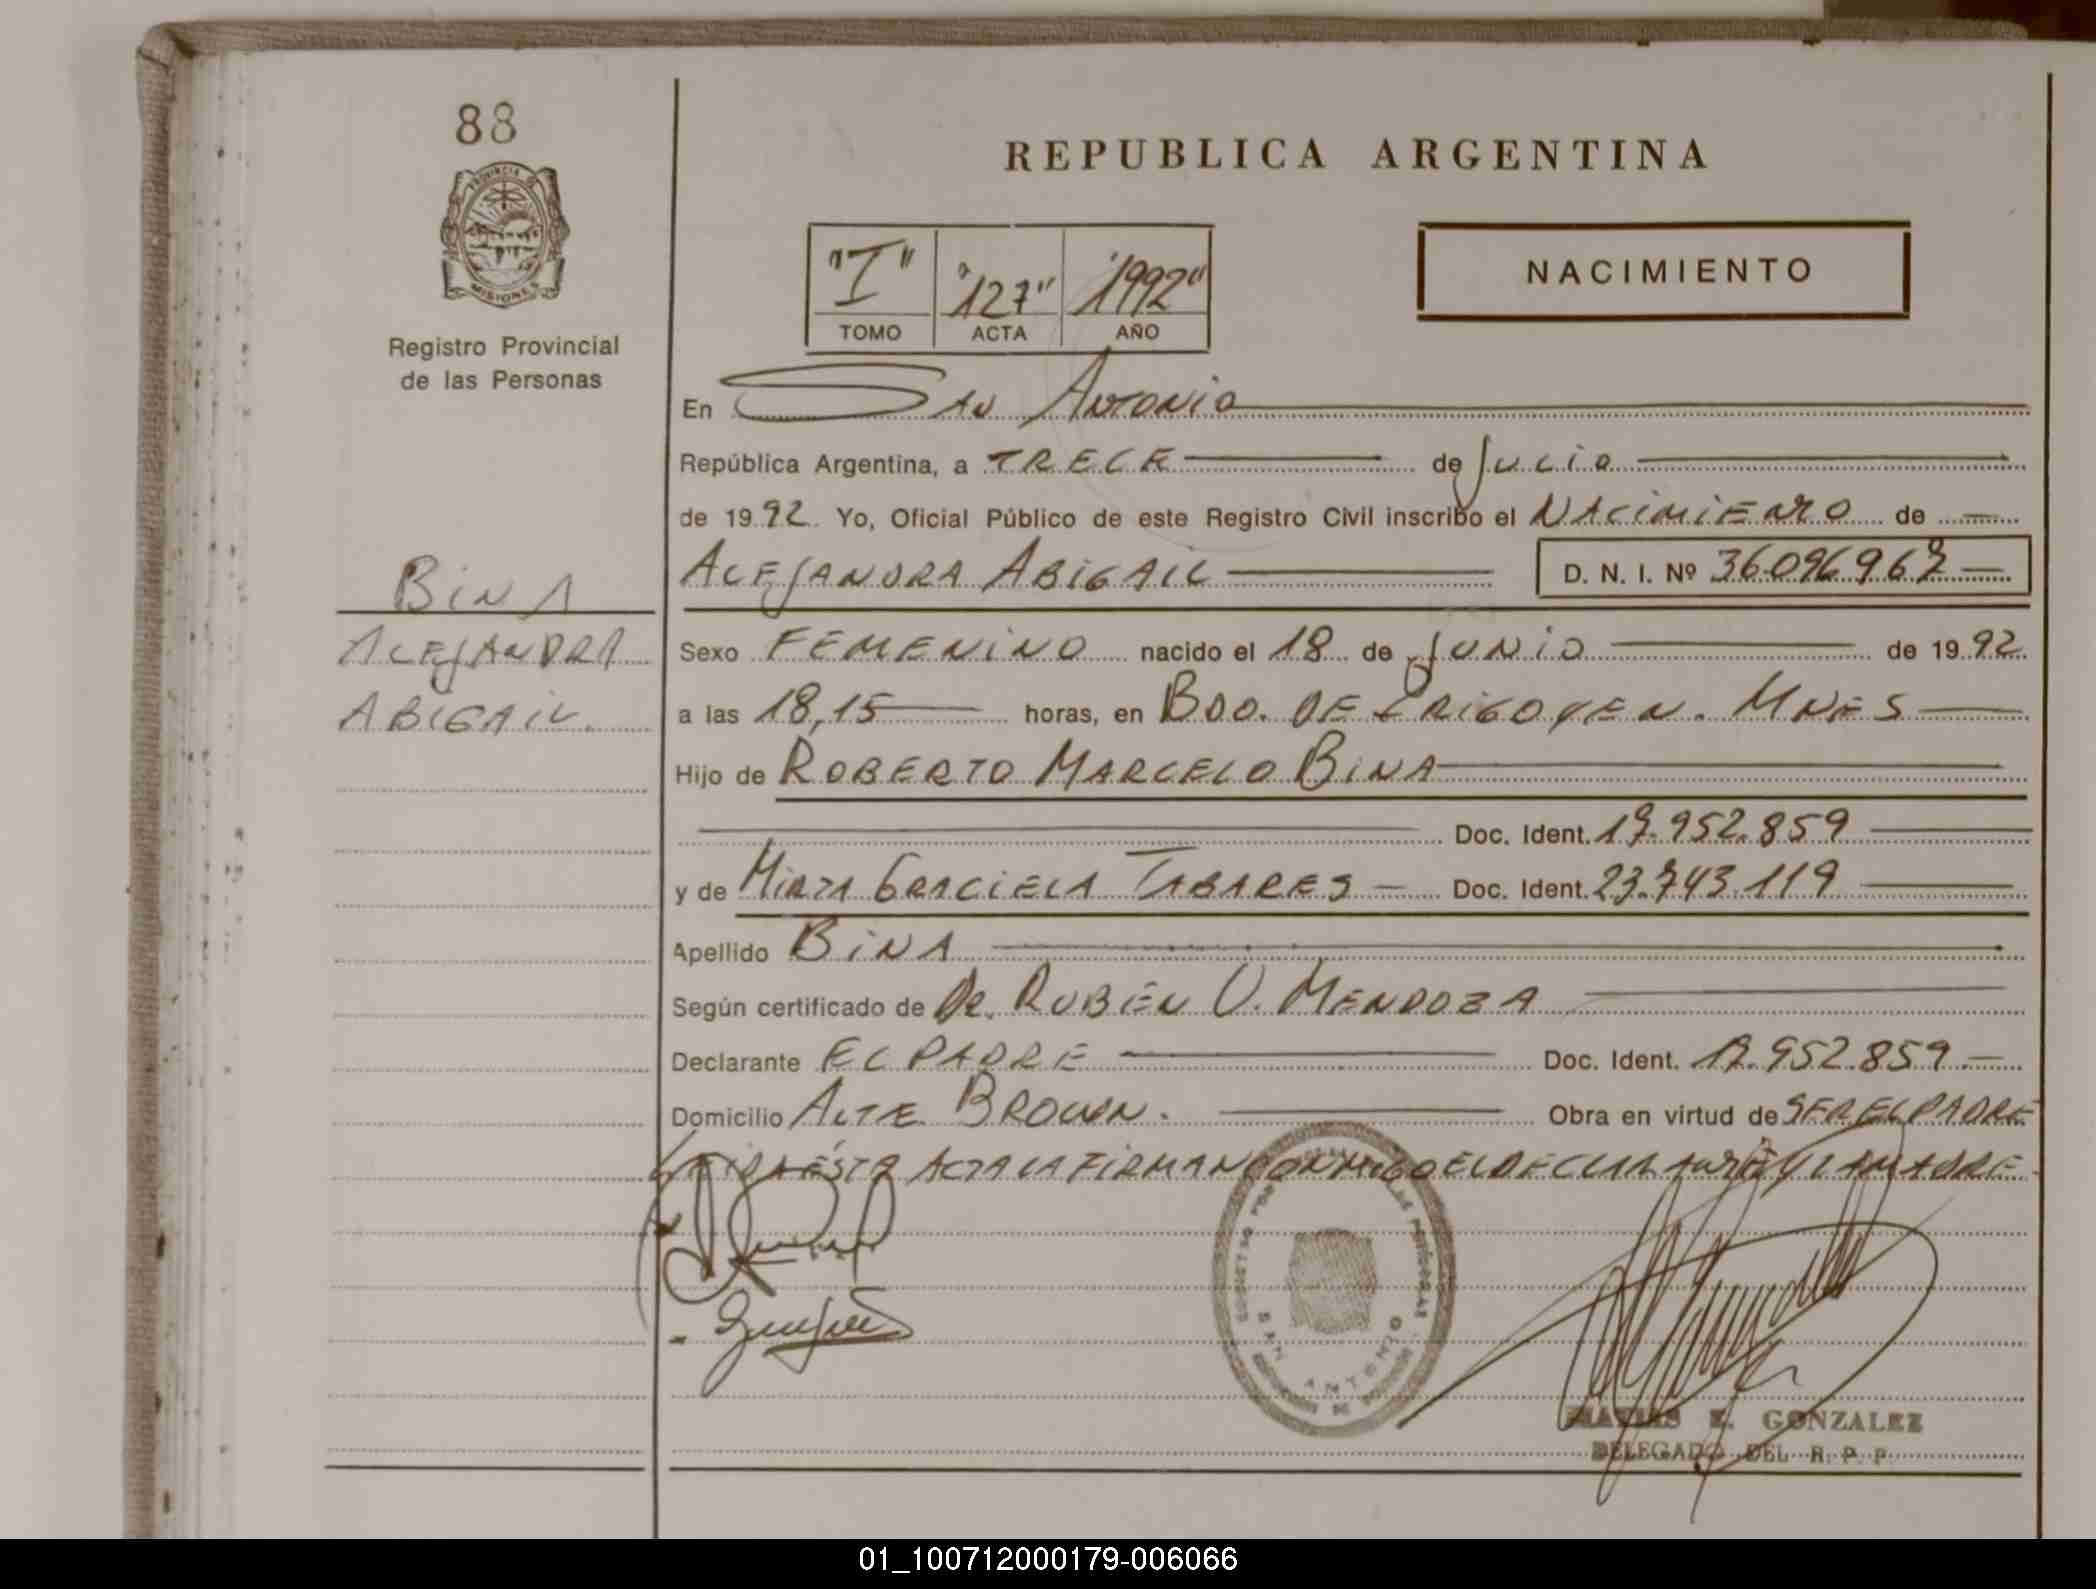 88
PROVINCIA DE
MISIONES
Registro Provincial
de las Personas
BINA
ALEJANDRA
ABIGAIL.
REPUBLICA ARGENTINA
"I" "127" "1992"
TOMO ACTA AÑO
NACIMIENTO
En SAN ANTONIO
República Argentina, a TRECE de JULIO
de 1992 Yo, Oficial Público de este Registro Civil inscribo el NACIMIENTO de
ALEJANDRA ABIGAIL D. N. I. Nº
Sexo FEMENINO nacido el 18 de JUNIO de 1992
a las 18,15 horas, en BDO. DE IRIGOYEN. MNES
Hijo de ROBERTO MARCELO BINA
Doc. Ident. 17.952.859
y de MIRTA GRACIELA TABARES Doc. Ident. 23.743.119
Apellido BINA
Según certificado de DR. RUBEN O. MENDOZA
Declarante EL PADRE Doc. Ident. 17.952.859
Domicilio ALTE BROWN. Obra en virtud de SER EL PADRE
ESTA ACTA LA FIRMAN CONMIGO EL DECLARANTE Y LA MADRE.
SAN ANTONIO
MATIAS E. GONZALEZ
DELEGADO DEL R. P. P.
01_100712000179-006066